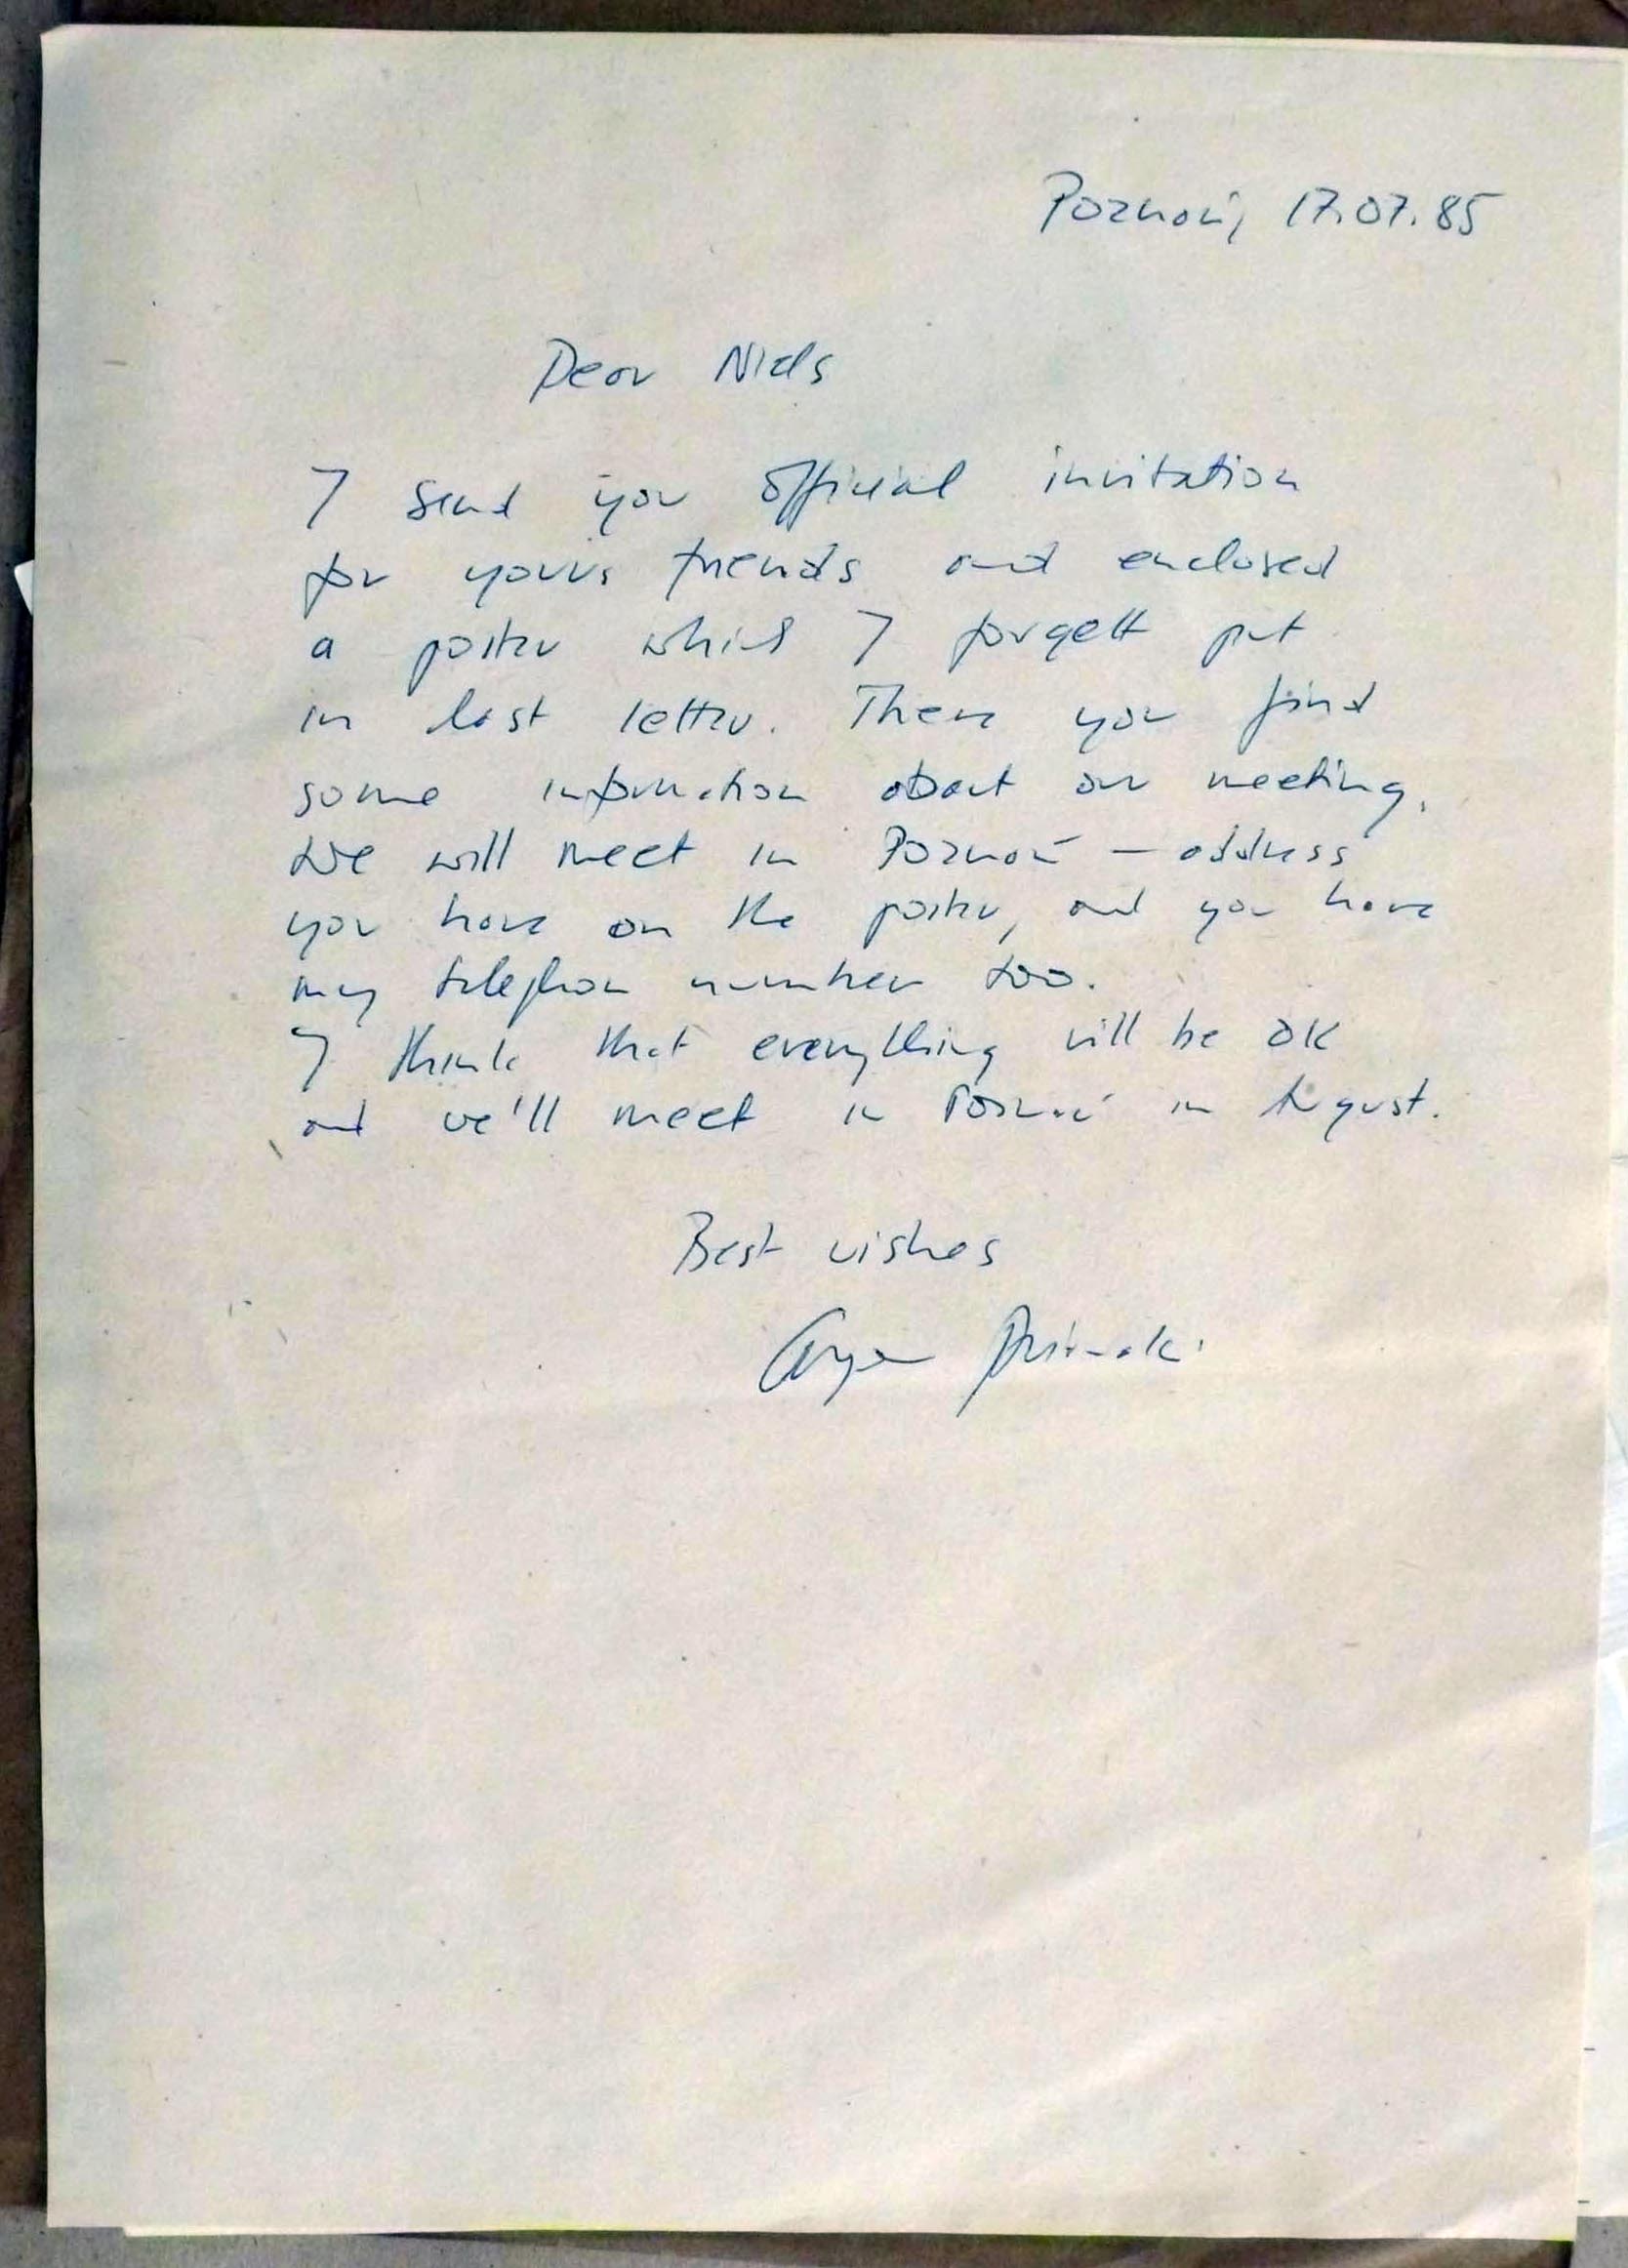 Poznań, 17.07.85
Dear Niels
I send you official invitation
for yours friends and enclosed
a poster which I forgett put
in last letter. There you find
some information about our meeting.
We will meet in Poznań – address
you have on the poster, and you have
my telephon number too.
I think that everything will be OK
and we'll meet in Poznań in August.
Best wishes